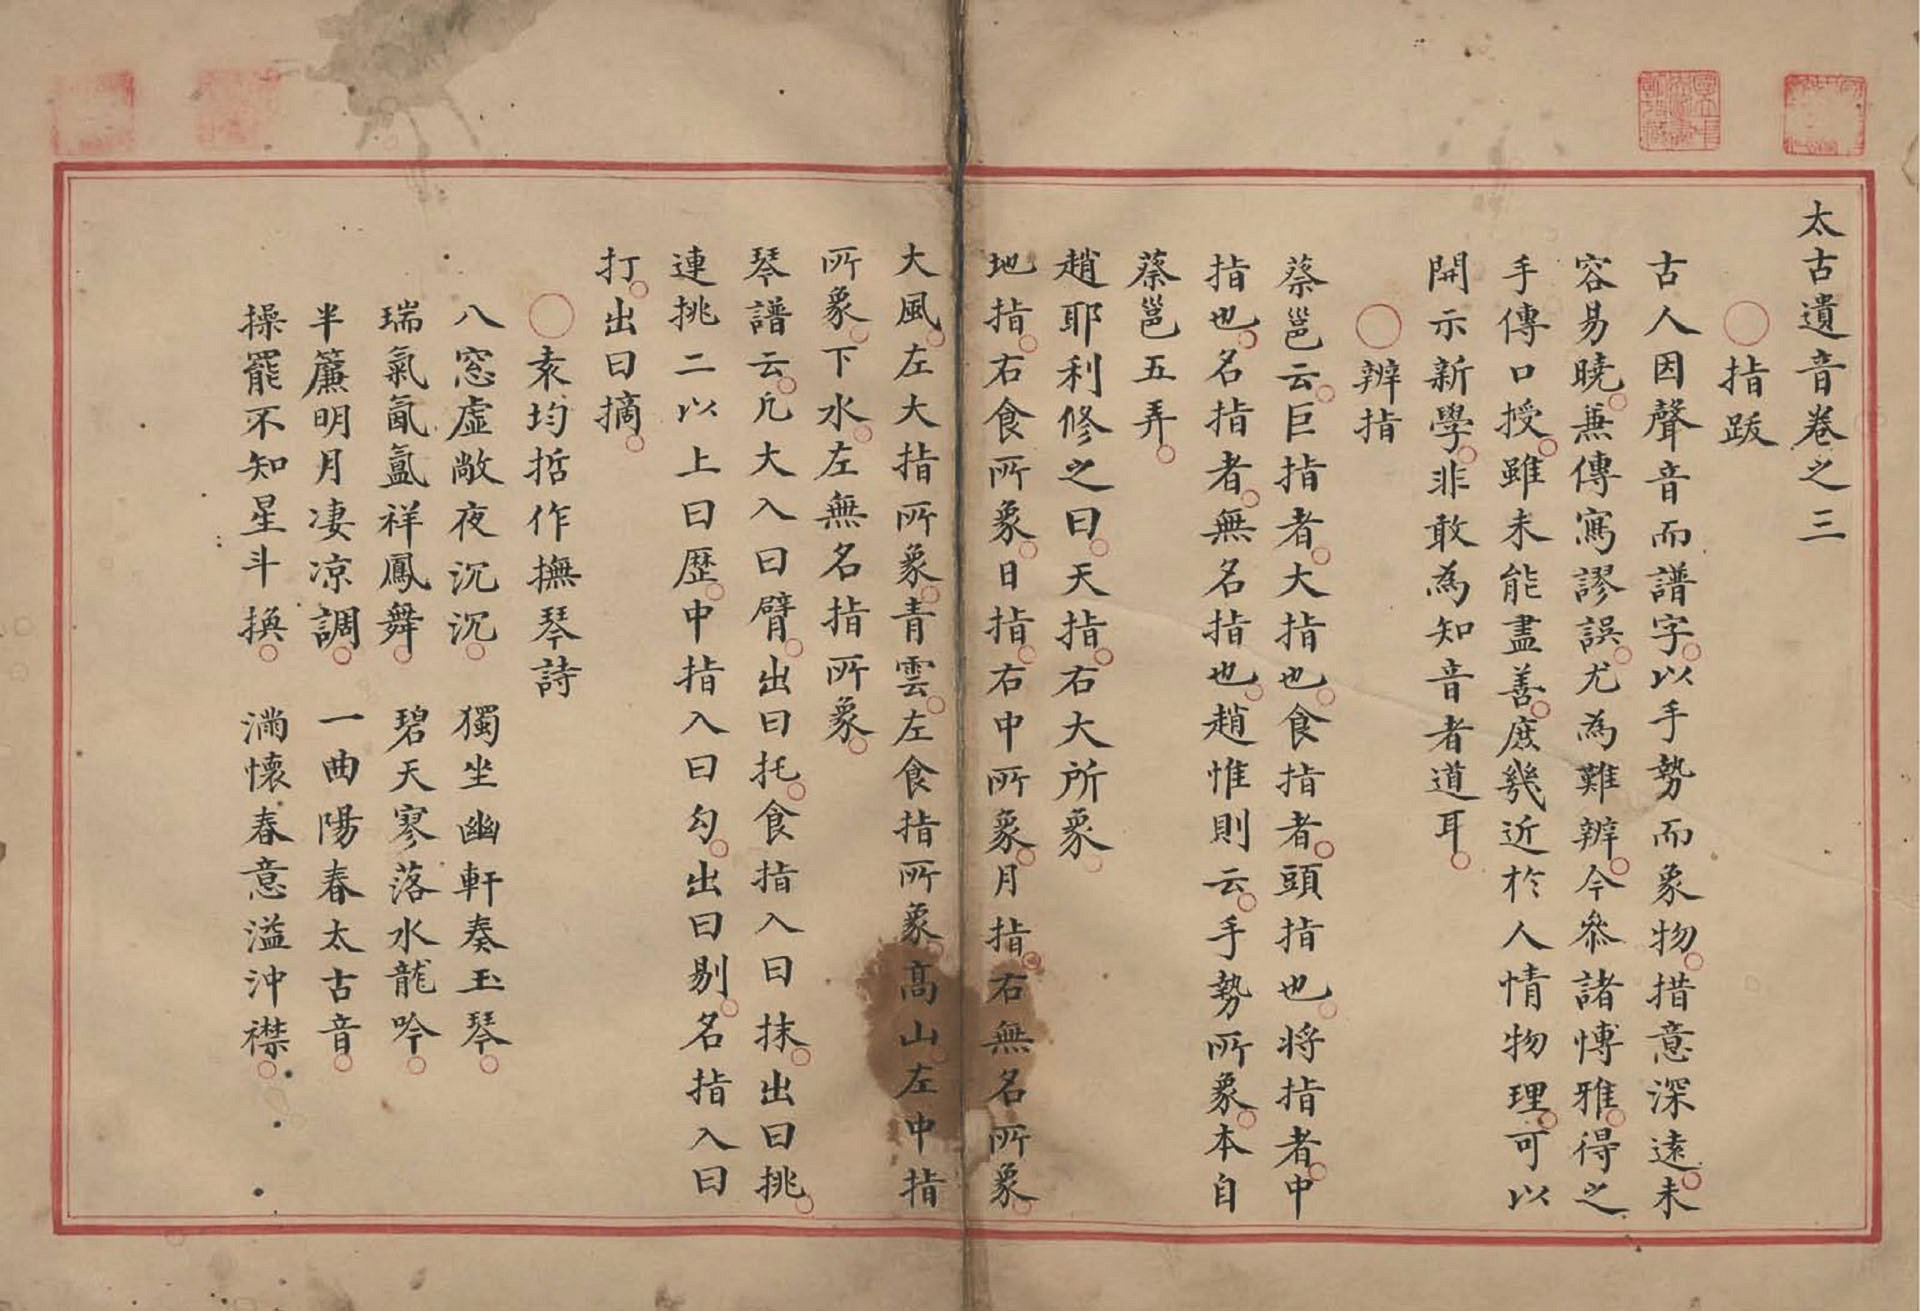 太古遺音卷之三
○指跋
古人因聲音而譜字。以手勢而象物。措意深遠。未
容易曉。兼傳寫謬誤。尤為難辨。今叅諸愽雅。得之
手傳口授。雖未能盡善。庶幾近於人情物理。可以
開示新學。非敢為知音者道耳。
○辨指
蔡邕云。巨指者。大指也。食指者。頭指也。将指者。中
指也。名指者。無名指也。趙惟則云。手勢所象。本自
蔡邕五弄。
趙耶利修之曰。天指。右大所象。
地指。右食所象。日指。右中所象。月指。右無名所象。
大風。左大指所象。青雲。左食指所象。高山。左中指
所象。下水。左無名指所象。
琴譜云。凢大入曰臂。出曰托。食指入曰抹。出曰挑。
連挑二以上曰歷。中指入曰勾。出曰剔。名指入曰
打。出曰摘。
○袁均哲作撫琴詩
八窓虚敞夜沉沉。 獨坐幽軒奏玉琴。
瑞氣氤氳祥鳳舞。 碧天寥落水龍吟。
半簾明月凄凉調。 一曲陽春太古音。
操罷不知星斗換。 滿懷春意溢沖襟。